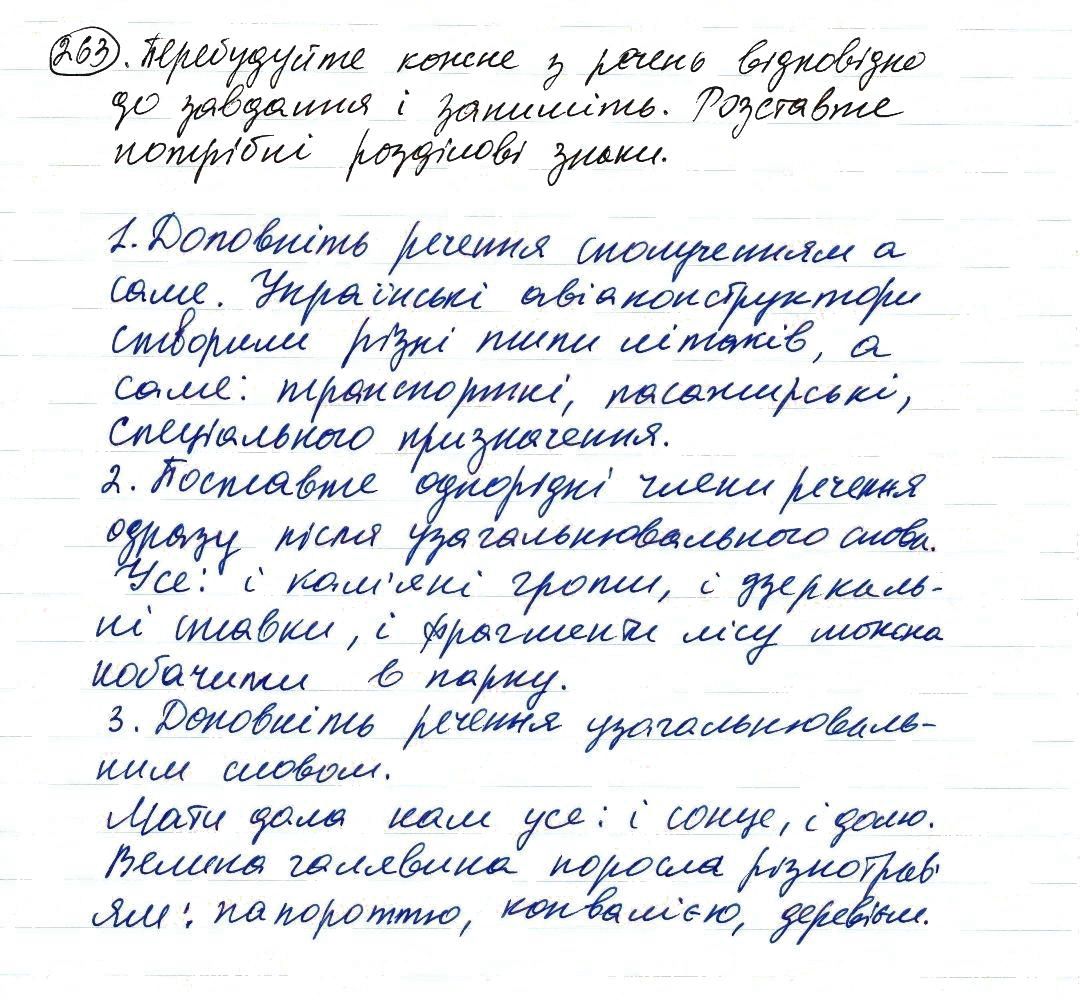 263. Перебудуйте кожне з речень відповідно
до завдання і запишіть. Розставте
потрібні розділові знаки.
1. Доповніть речення сполученням а
саме. Українські авіаконструктори
створили різні типи літаків, а
саме: транспортні, пасажирські,
спеціального призначення.
2. Поставте однорідні члени речення
одразу після узагальнювального слова.
Усе: і кам'яні гроти, і дзеркаль-
ні ставки, і фрагменти лісу можна
побачити в парку.
3. Доповніть речення узагальнюваль-
ним словом.
Мати дала нам усе: і сонце, і долю.
Велика галявина поросла різнотрав'
ям: папороттю, конвалією, деревієм.